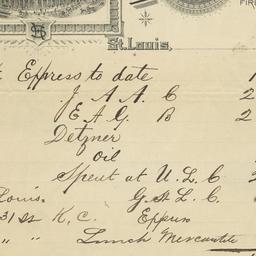 FIR
St. Louis,
Express to date 1
J A A C 2
E A G B 2
Detzner
Oil
Spent at U. L. C.
Louis. G. St L. C.
31 St K. C. Express
" " Lunch Mercantile